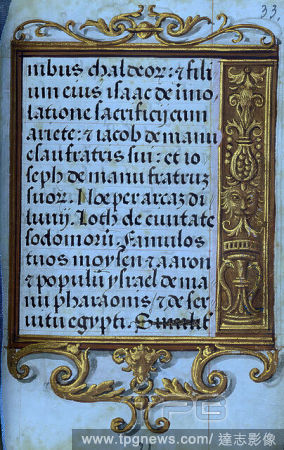 33.
nibus chaldeor: ⁊ fili
um eius isaac de imo
latione sacrificij cum
ariete: ⁊ iacob de manu
esau fratris sui: et io
seph de manu fratruz
suor. Noe per arcaz di
luuij. Loth de ciuitate
sodomoru. Famulos
tuos moysen ⁊ aaron
⁊ populu ysrael de ma
nu pharaonis ⁊ de ser
uitu egypti.
TPG
www.tpgnews.com/達志影像